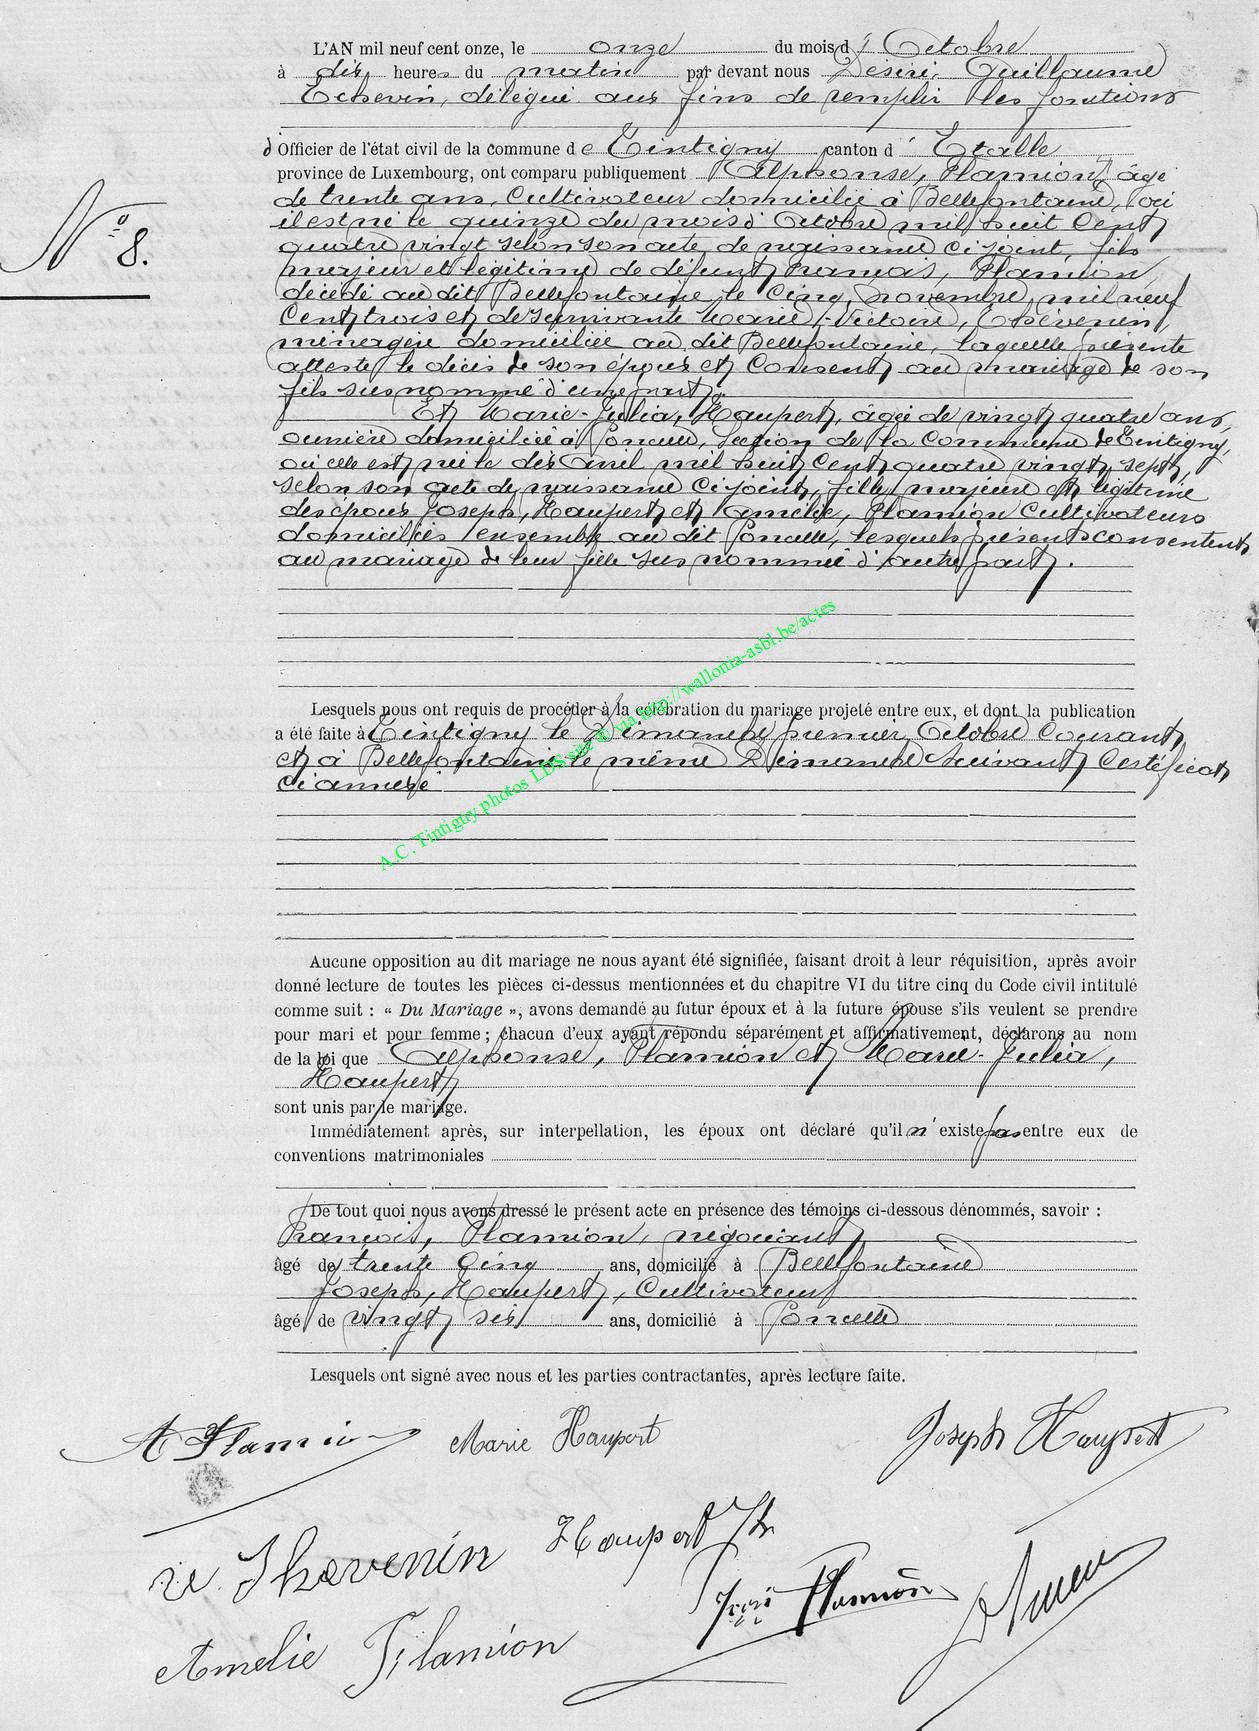 L'AN mil neuf cent onze, le onze du mois d' Octobre
à dix heures du matin par devant nous Désiré Guillaume
Echevin, délégué aux fins de remplir les fonctions
d'Officier de l'état civil de la commune de Tintigny canton d' Etalle
province de Luxembourg, ont comparu publiquement Alphonse, Flamion, âgé
de trente ans, Cultivateur domicilié à Bellefontaine, où
il est né le quinze du mois d' Octobre mil huit Cent
N° 8.
quatre vingt selon son acte de naissance ci-joint, fils
majeur et légitime de défunt François, Flamion,
décédé au dit Bellefontaine le Cinq novembre mil neuf
Cent trois et de survivante Marie-Victoire, Thévenin,
ménagère domiciliée au dit Bellefontaine, laquelle présente
atteste le décès de son époux et Consent au mariage de son
fils susnommé d'une part.
Et Marie-Julia, Haupert, âgée de vingt quatre ans,
ouvrière domiciliée à Poncelle, Section de la Commune de Tintigny,
où elle est née le dix Avril mil huit Cent quatre vingt sept,
selon son acte de naissance Ci-joint, fille majeure et légitime
des époux Joseph, Haupert et Amélie, Flamion Cultivateurs
domiciliés ensemble au dit Poncelle, lesquels présents consentent
au mariage de leur fille sus nommée d'autre part.
Lesquels nous ont requis de procéder à la célébration du mariage projeté entre eux, et dont la publication
a été faite à Tintigny le Dimanche premier Octobre Courant
et à Bellefontaine le même Dimanche Suivant Certificat
ci annexé
A.C. Tintigny photos LDS site © via http://wallonia-asbl.be/actes
Aucune opposition au dit mariage ne nous ayant été signifiée, faisant droit à leur réquisition, après avoir
donné lecture de toutes les pièces ci-dessus mentionnées et du chapitre VI du titre cinq du Code civil intitulé
comme suit : « Du Mariage », avons demandé au futur époux et à la future épouse s'ils veulent se prendre
pour mari et pour femme ; chacun d'eux ayant répondu séparément et affirmativement, déclarons au nom
de la loi que Alphonse, Flamion et Marie-Julia,
Haupert
sont unis par le mariage.
Immédiatement après, sur interpellation, les époux ont déclaré qu'il n'existe pas entre eux de
conventions matrimoniales
De tout quoi nous avons dressé le présent acte en présence des témoins ci-dessous dénommés, savoir :
François, Flamion, négociant
âgé de trente Cinq ans, domicilié à Bellefontaine
Joseph, Haupert, Cultivateur
âgé de vingt six ans, domicilié à Poncelle
Lesquels ont signé avec nous et les parties contractantes, après lecture faite.
A Flamion Marie Haupert Joseph Haupert
Thévenin Haupert Jh
Flamion
Amelie Flamion